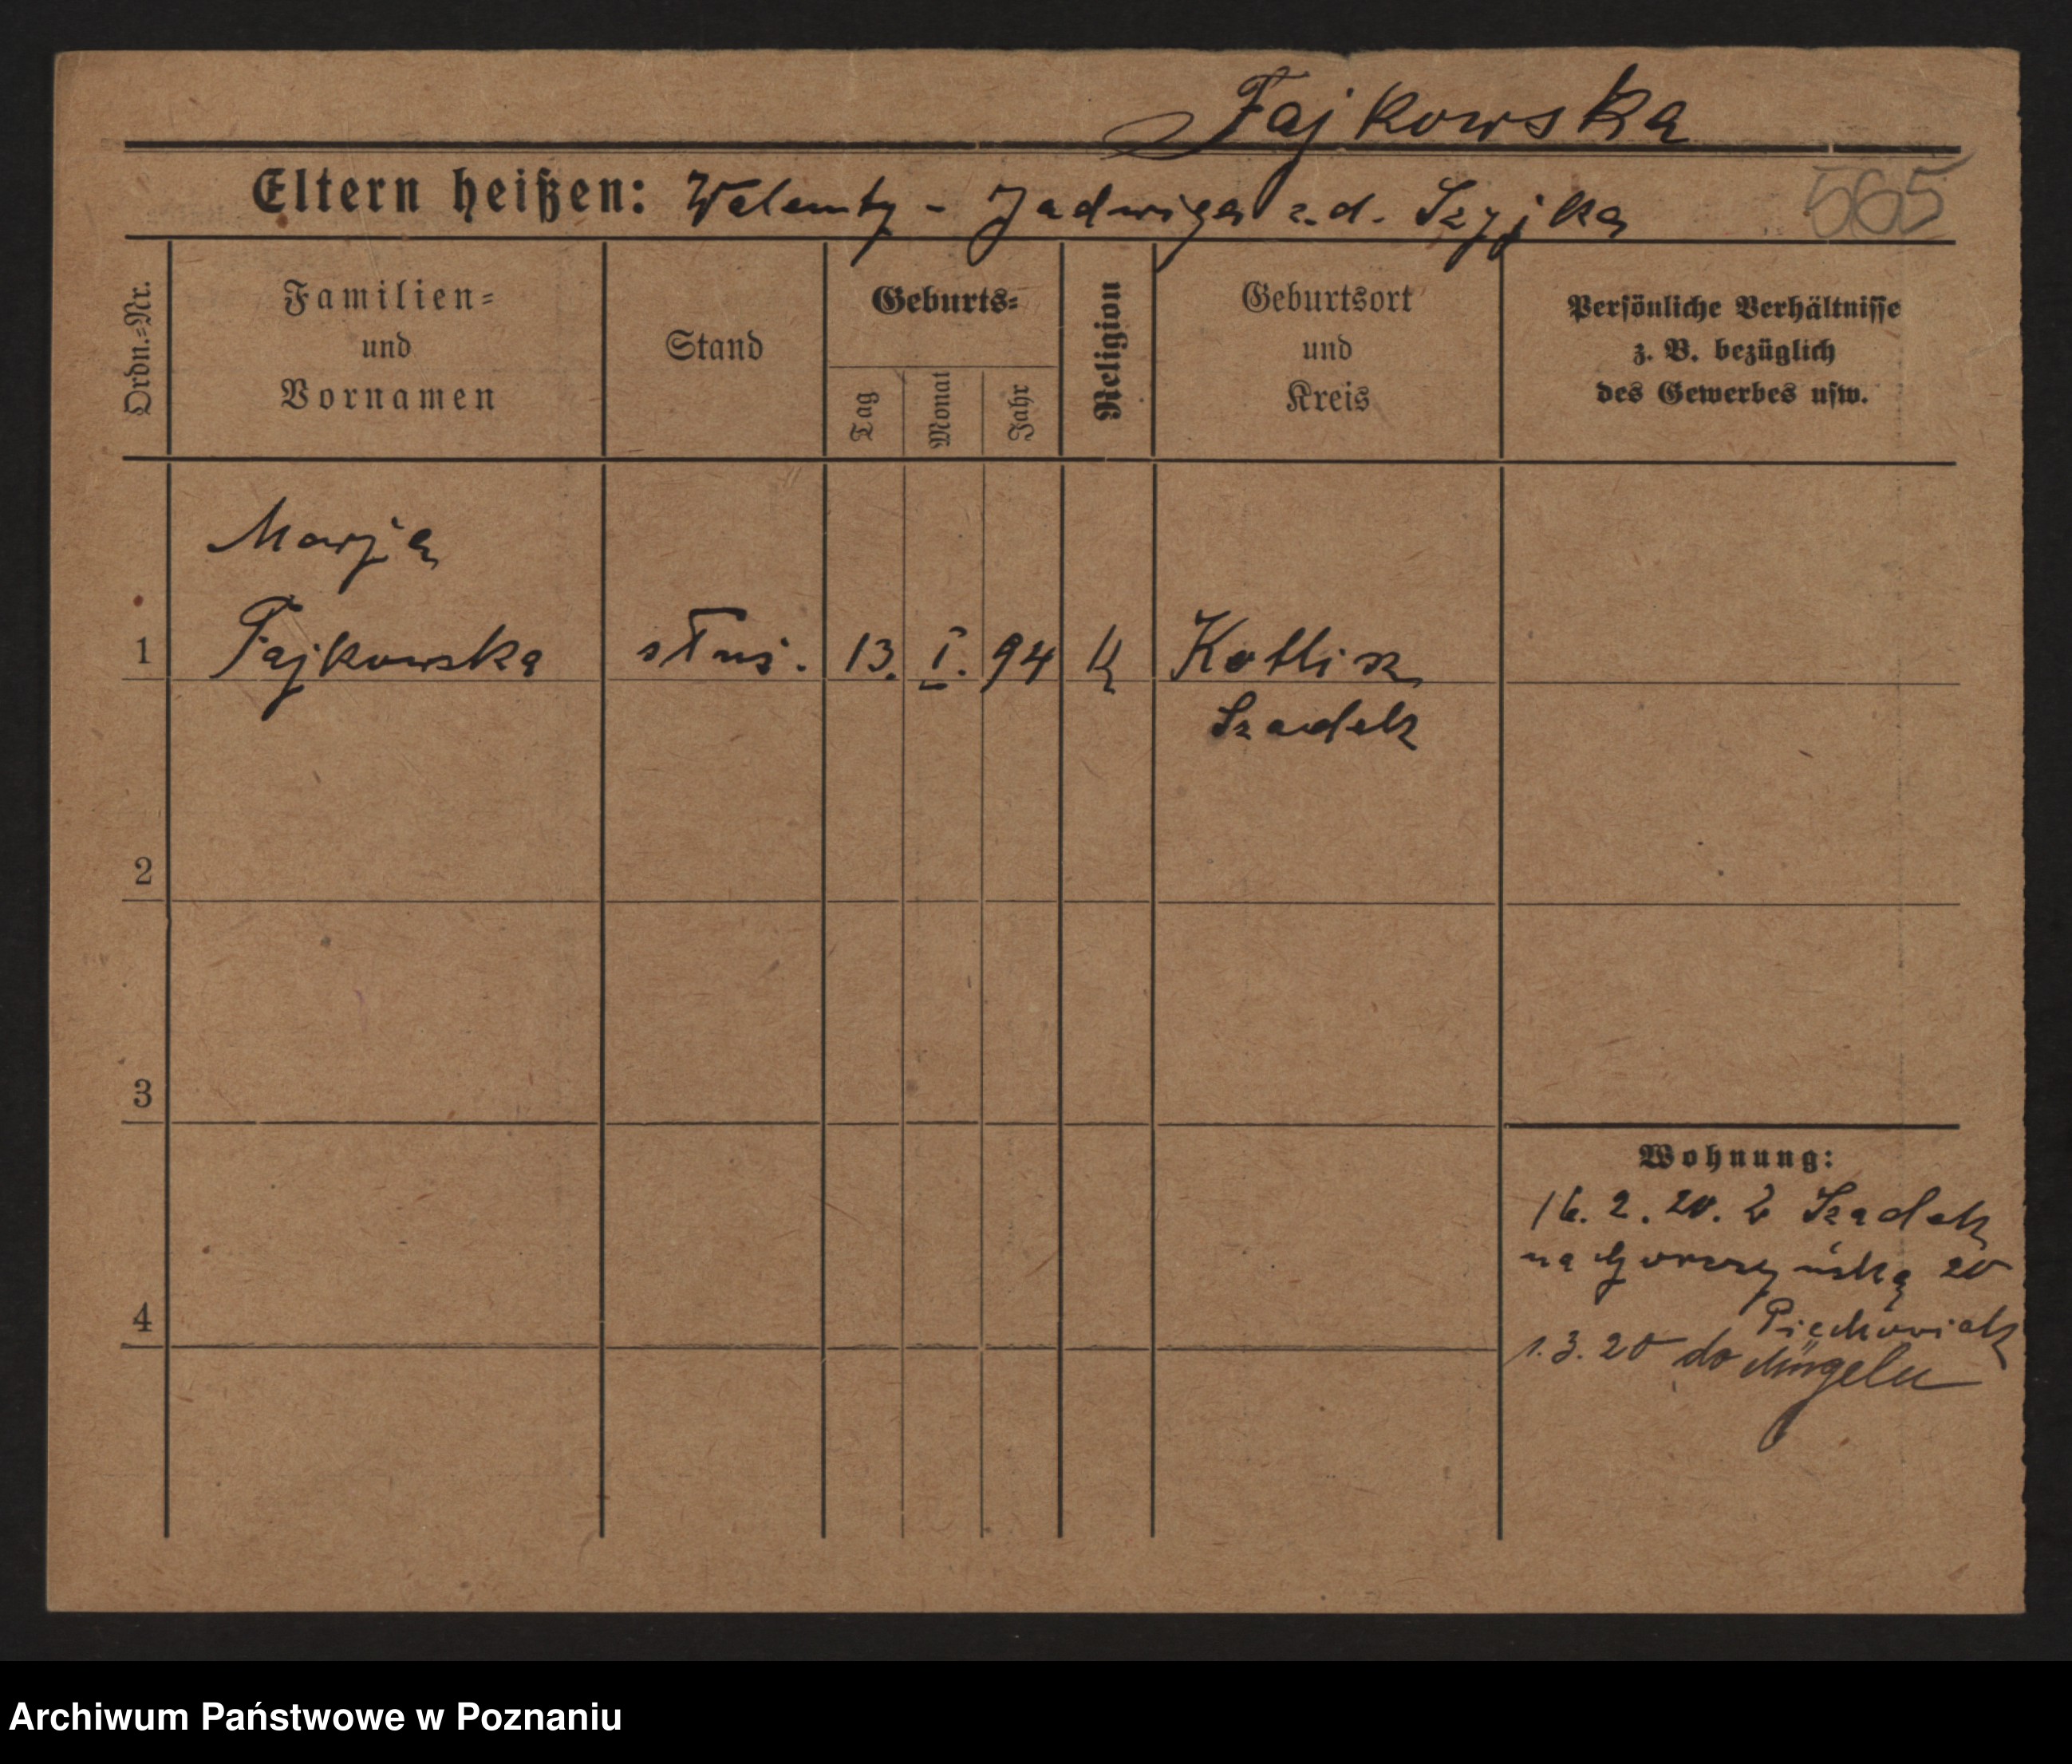 Fajkowska
Eltern heißen: Walenty - Jadwiga z.d. Szyjka
565
Ordn.=Nr.
Familien=
und
Vornamen
Stand
Geburts=
Tag
Monat
Jahr
Religion
Geburtsort
und
Kreis
Persönliche Verhältnisse
z. B. bezüglich
des Gewerbes usw.
Marja
1 Fajkowska służ. 13. I. 94 K Kotlin
Szadek
2
3
4
Wohnung:
16. 2. 20. z Szadek
na Gorczyńską 20
Piechowiak
1.3.20 do
Archiwum Państwowe w Poznaniu